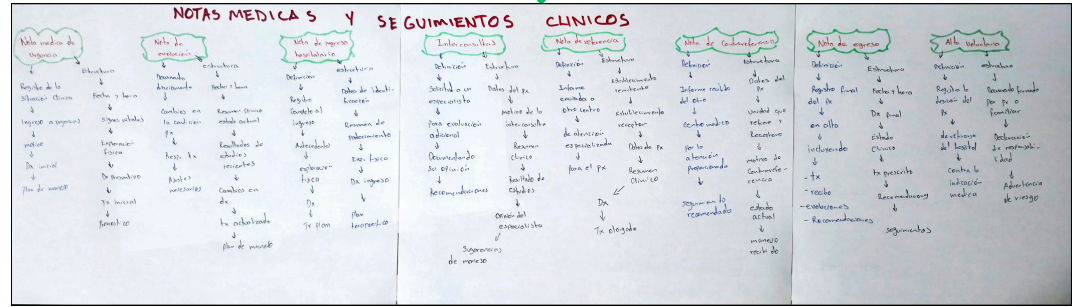 NOTAS MEDICAS Y SEGUIMIENTOS CLINICOS
Nota medica de
Urgencia
Estructura
Registro de la
Situacion clinica
Ingreso a urgencias
motivo
Dx inicial
plan de manejo
Fecha y hora
Signos vitales
Exploración
fisica
Dx Presuntivo
Tx inicial
Pronostico
Nota de
evolución
estructura
Documento
Cambios en
la condición
Px
Resp. tx
Ajustes
necesarios
Fecha y hora
Resumen clinico
estado actual
Resultados de
estudios
recientes
Cambios en
dx
tx actualizado
plan de manejo
Nota de ingreso
hospitalario
Definición
estructura
Registro
Completo al
ingreso
Antecedentes
exploración
fisica
Dx
Tx plan
Datos de identi-
ficación
Resumen de
padecimiento
Exp. fisica
Dx ingreso
plan
terapeutico
Interconsultas
Definición
Estructura
Solicitud a un
especialista
para evaluación
adicional
Documentando
su opinión
Recomendaciones
Datos del px
motivo de la
interconsulta
Resumen
Clinico
Resultado de
estudios
Opinión del
especialista
Sugerencias
de manejo
Nota de referencia
Definición
Estructura
Informe
enviado a
otro centro
de atención
especializada
para el px
Establecimiento
remitente
Establecimiento
receptor
Datos de Px
Resumen
Clinico
Dx
Tx otorgado
Nota de Contrareferencia
Definición
Estructura
Informe recibido
del otro
Centro medico
por la
atención
proporcionada
seguimiento
recomendado
Datos del
Px
unidad que
refiere y
Receptora
motivo de
Contrarefe-
rencia
estado
actual
manejo
recibido
Nota de egreso
Definición
Estructura
Registro final
del px
en alta
incluyendo
- tx
- recibo
- evoluciones
- Recomendaciones
Fecha y hora
Dx final
Estado
Clinico
tx prescrito
Recomendaciones
seguimientos
Alta Voluntaria
Definición
estructura
Registra la
decisión del
Px
de retirarse
del hospital
contra la
indicación
medica
Documento firmado
por px o
familiar
Declaración
de responsabi-
lidad
Advertencia
de riesgo